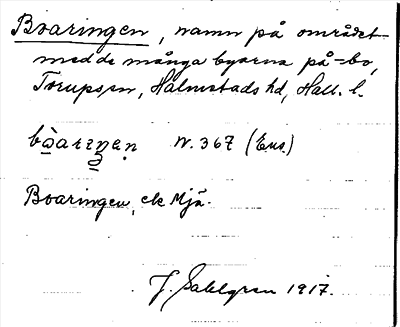 Boaringen, namn på området
med de många byarna på -bo,
Torups sn, Halmstads hd, Hall. l.
bòarıŋen N. 367 (Ens.)
Boaringen, ek Mjä.
J. Sahlgren 1917.